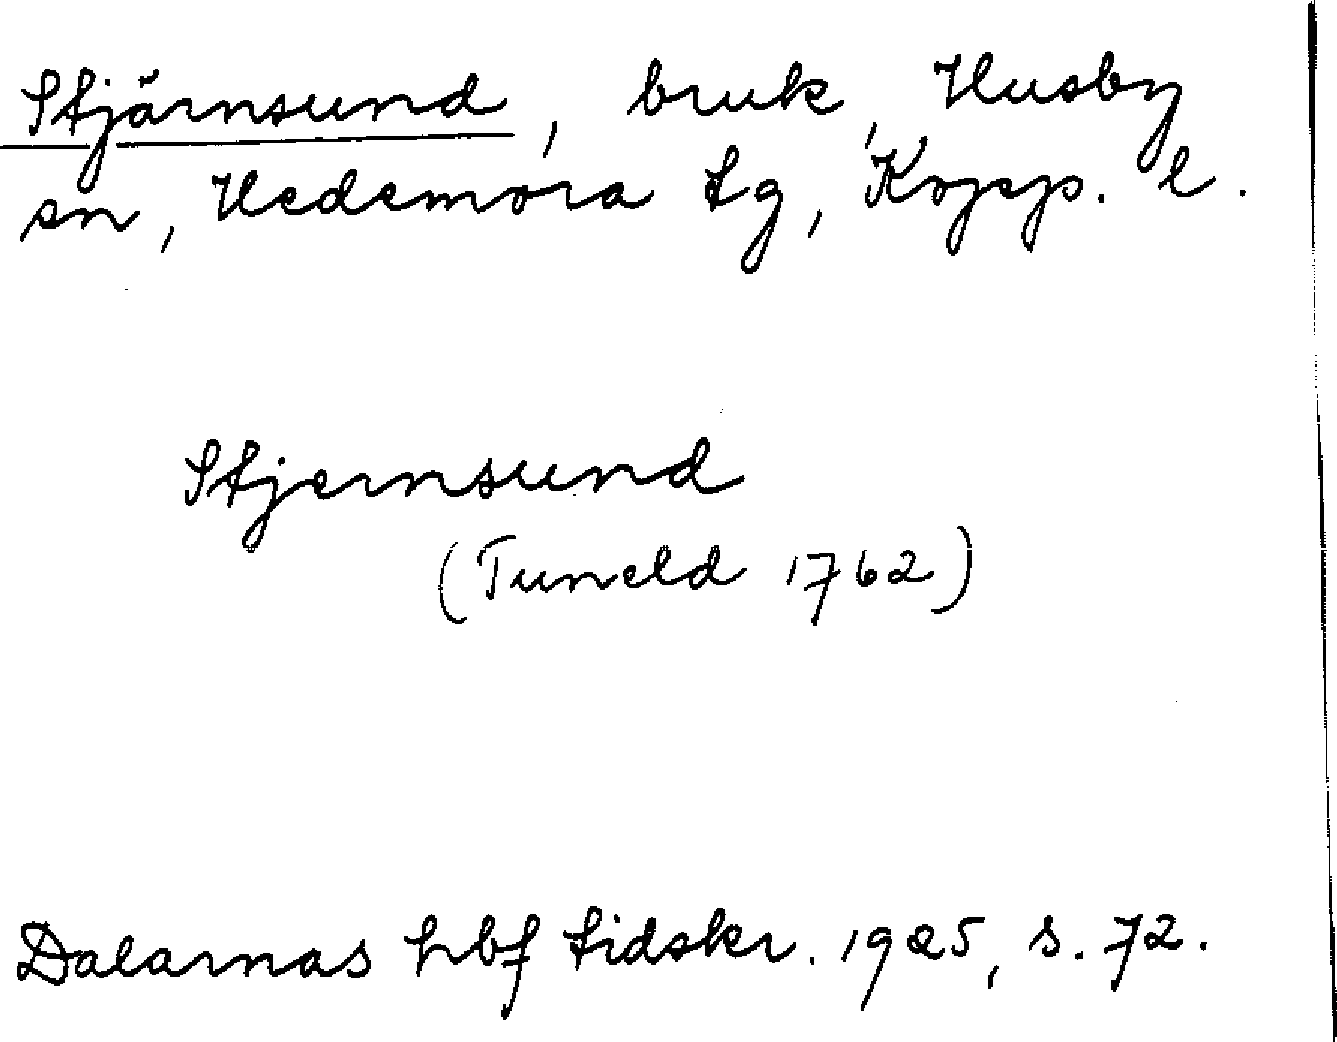 Stjärnsund, bruk, Husby
sn, Hedemora tg, Kopp. l.
Stjernsund
(Tuneld 1762)
Dalarnas hbf tidskr. 1925, s. 72.